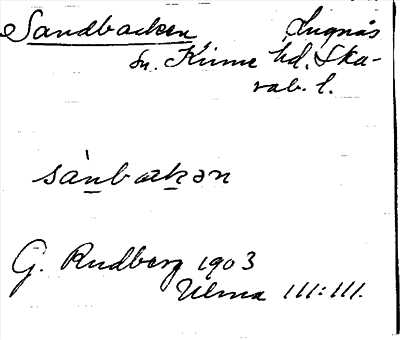 Sandbacken Lugnås
sn. Kinne hd. Ska-
rab. l.
sànbakən
G. Rudberg 1903
Ulma 111:111.